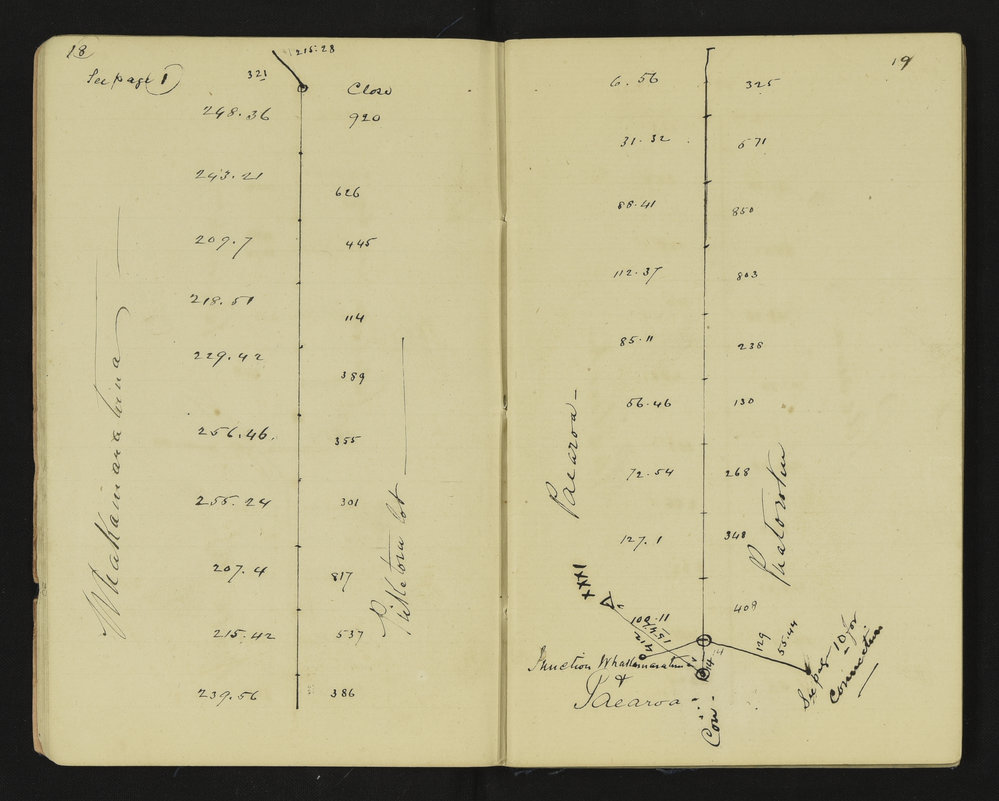 18
215.28
See page 1
321
Close
248.36 920
243.21 626
209.7 445
218.51 114
229.42 389
256.46. 355
255.24 301
207.4 817
215.42 537
239.56 386
Whakamarahina
lot
19
6.56 325
31.32 571
88.41 850
112.37 803
85.11 238
56.46 130
72.54 268
127.1 348
408
Paearoa -
XXXI
100.11
129
55.44
See page 10 for
Connection
Junction Whakamarahina
&
Paearoa
Com